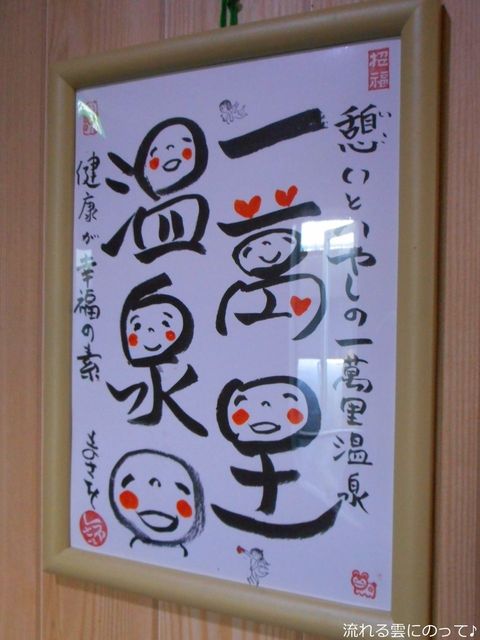 招福
憩いといやしの一萬里温泉
一萬里
温泉
健康が幸福の素
まさを
流れる雲にのって♪